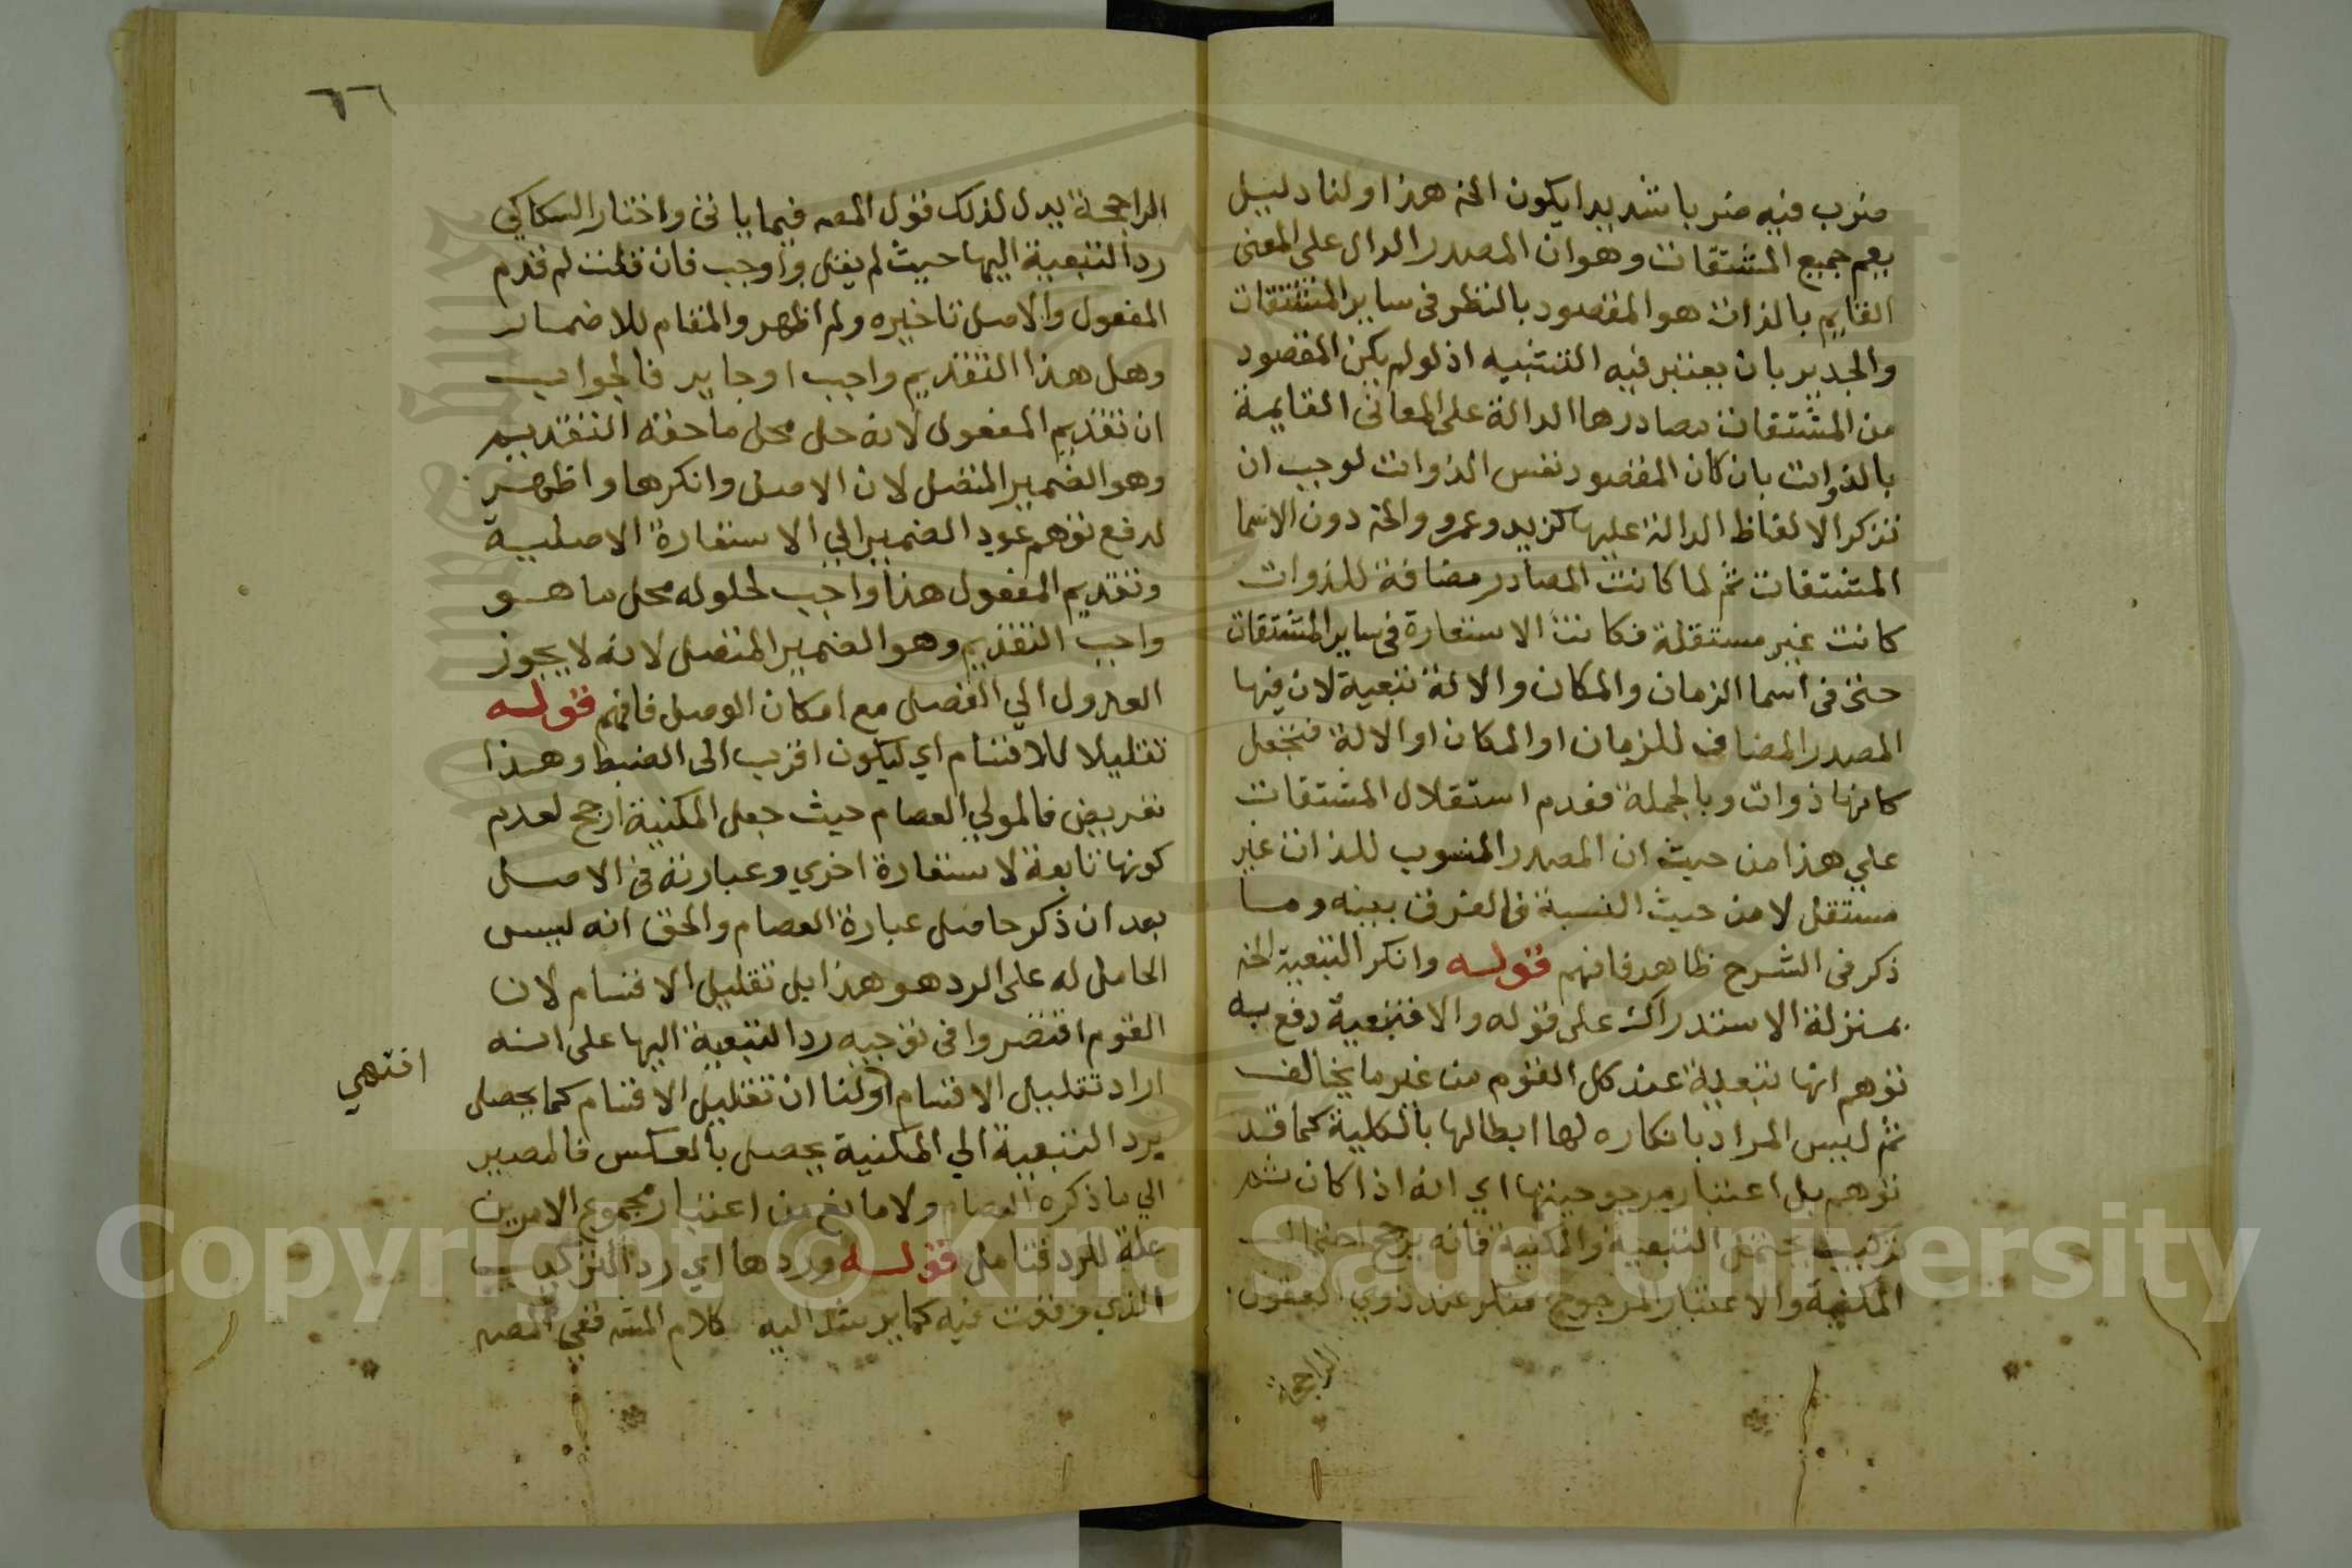 ضرب فيه ضربا شديدا يكون الخ هذا ولنا دليل
يعم جميع المشتقات وهو ان المصدر الدال على المعنى
القايم بالذات هو المقصود بالنظر في ساير المشتقات
والجدير بان يعتبر فيه التشبيه اذ لو لم يكن المقصود
من المشتقات مصادرها الدالة على المعاني القايمة
بالذوات بان كان المقصود نفس الذوات لوجب ان
تذكر الالفاظ الدالة عليها كزيد وعمرو والخ دون الاسما
المشتقات ثم لما كانت المصادر مضافة للذوات
كانت غير مستقلة فكانت الاستعارة في ساير المشتقات
حتى في اسما الزمان والمكان والالة تبعية لان فيها
المصدر المضاف للزمان او المكان او الالة فتجعل
كانها ذوات وبالجملة فعدم استقلال المشتقات
علي هذا من حيث ان المصدر المنسوب للذات غير
مستقل لا من حيث النسبة فالفرق بينه وما
ذكر في الشرح ظاهر فافهم قوله وانكر التبعية الخ
بمنزلة الاستدراك على قوله والا فتبعية دفع به
توهم انها تبعية عند كل القوم من غير ما يخالف
ثم ليس المراد بانكاره لها ابطالها بالكلية كما قد
توهم بل اعتبار مرجوحيتها اي انه اذا كان ثم
تركيب يحتمل التبعية والمكنية فانه يرجح احتمال
المكنية والاعتبار المرجوح منكر عند ذوي العقول
الراجحة
٦٦
الراجحة يدل لذلك قول المصه فيما ياتي واختار السكاكي
رد التبعية اليها حيث لم يقل واوجب فان قلت لم قدم
المفعول والاصل تاخيره ولم اظهر والمقام للاضمار
وهل هذا التقديم واجب او جايز فالجواب
ان تقديم المفعول لانه حل محل ما حقه التقديم
وهو الضمير المتصل لان الاصل وانكرها واظهر
لدفع توهم عود الضمير الي الاستعارة الاصلية
وتقديم المفعول هنا واجب لحلوله محل ما هو
واجب التقديم وهو الضمير المتصل لانه لا يجوز
العدول الي الفصل مع امكان الوصل فافهم قوله
تقليلا للاقسام اي ليكون اقرب الى الضبط وهذا
تعريض فالمولي العصام حيث جعل المكنية ارجح لعدم
كونها تابعة لاستعارة اخري وعبارته في الاصل
بعد ان ذكر حاصل عبارة العصام والحق انه ليس
الحامل له على الرد هو هذا بل تقليل الاقسام لان
القوم اقتصروا في توجيه رد التبعية اليها على انه
اراد تقليل الاقسام اولنا ان تقليل الاقسام كما يحصل
انتهي
برد التبعية الي المكنية يحصل بالعكس فالمصير
الي ما ذكره العصام ولا مانع من اعتبار مجموع الامرين
علة للرد فتامل قوله وردها اي رد التركيب
الذي وقعت فيه كما يرشد اليه كلام المتن ففي المصه
Copyright © King Saud University